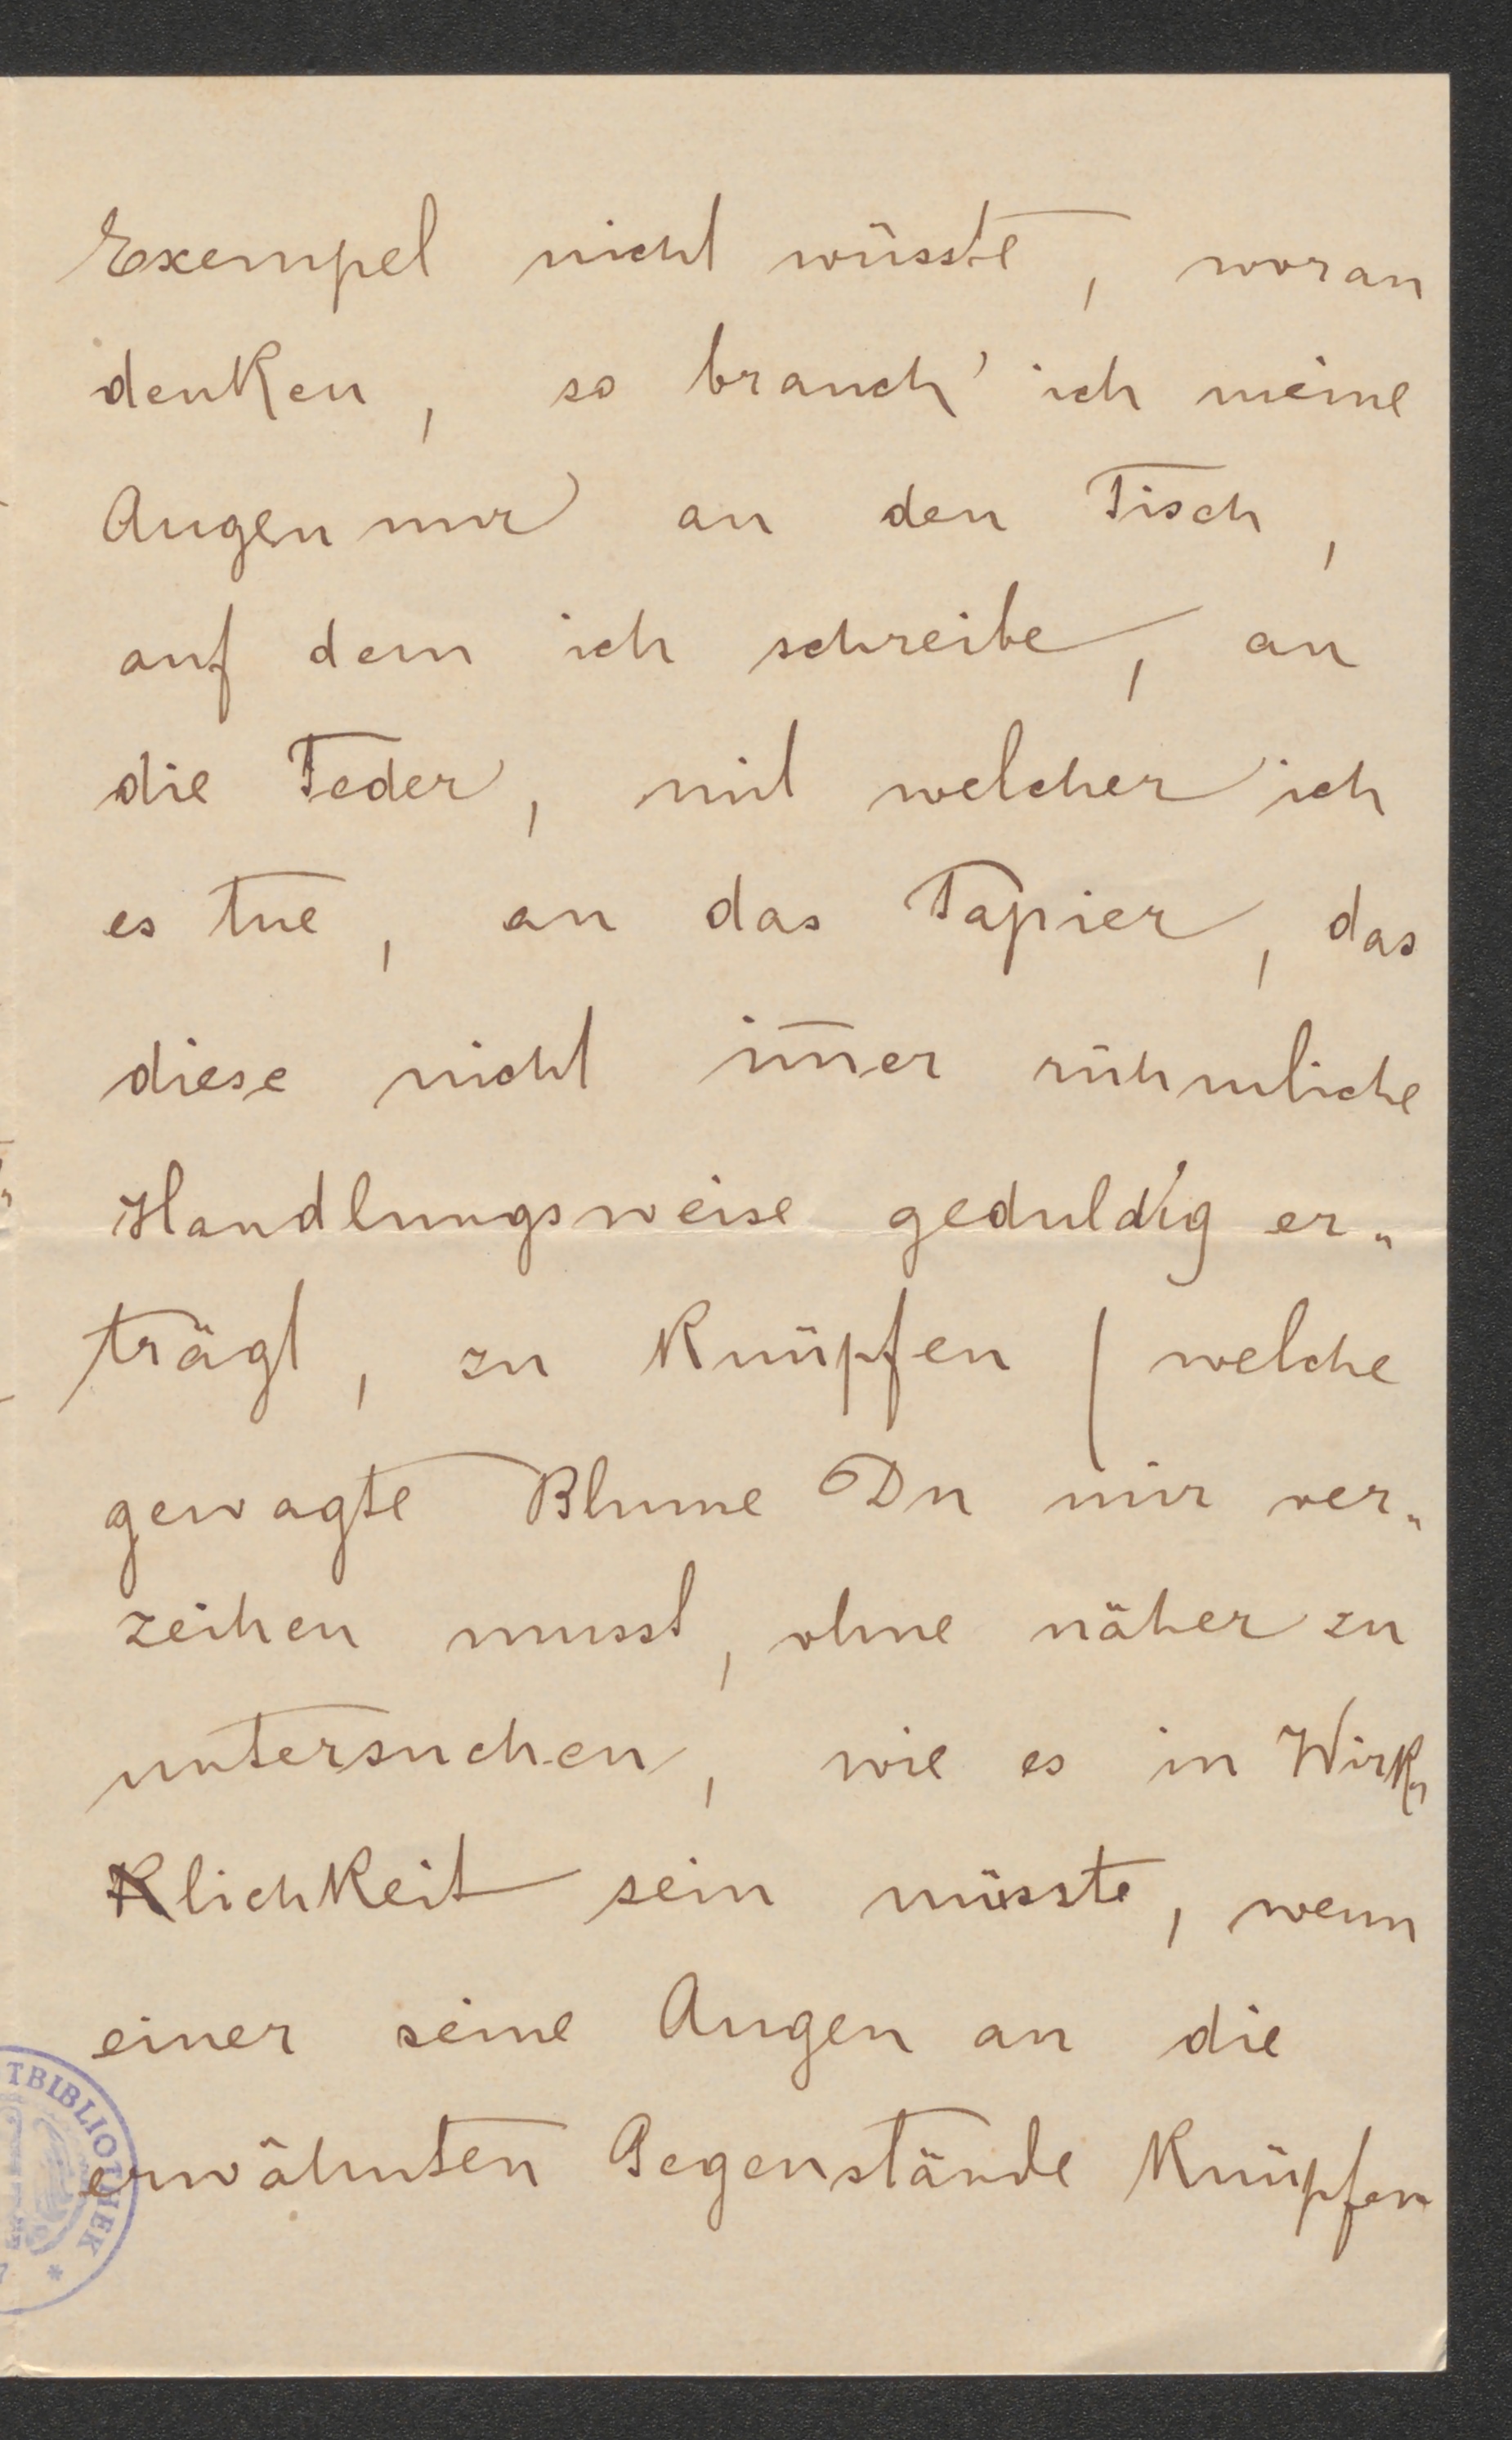 Exempel nicht wüsste, woran
denken, so brauch' ich meine
Augen nur an den Tisch,
auf dem ich schreibe, an
die Feder, mit welcher ich
es tue, an das Papier, das
diese nicht im̄er rühmliche
Handlungsweise geduldig er„
trägt, zu knüpfen / welche
gewagte Blume Du mir ver„
zeihen musst, ohne näher zu
untersuchen, wie es in Wirk„
klichkeit sein müsste, wenn
einer seine Augen an die
erwähnten Gegenstände knüpfen
TBIBLIOTHEK *